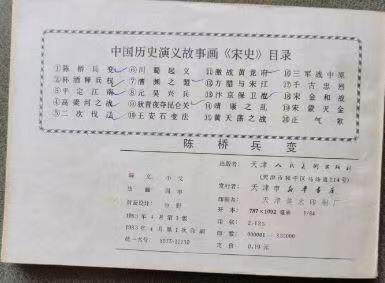 中国历史演义故事画《宋史》目录
①陈桥兵变 ⑥川蜀起义 ⑪激战黄龙府 ⑯三军战中原
②杯酒释兵权 ⑦澶渊之盟 ⑫方腊与宋江 ⑰千古忠烈
③平定江南 ⑧元昊兴兵 ⑬汴京保卫战 ⑱宋金和战
④高梁河之战 ⑨狄青夜夺昆仑关 ⑭靖康之乱 ⑲宋蒙灭金
⑤二次伐辽 ⑩王安石变法 ⑮黄天荡之战 ⑳正气歌
陈桥兵变
出版者 天津人民美术出版社
(天津市和平区马场道114号)
发行者 天津市新华书店
天津美术印刷厂
开本 787×1092 毫米 1/64
1983年4月第1版
1983年4月第1次印刷
定价 0.19元